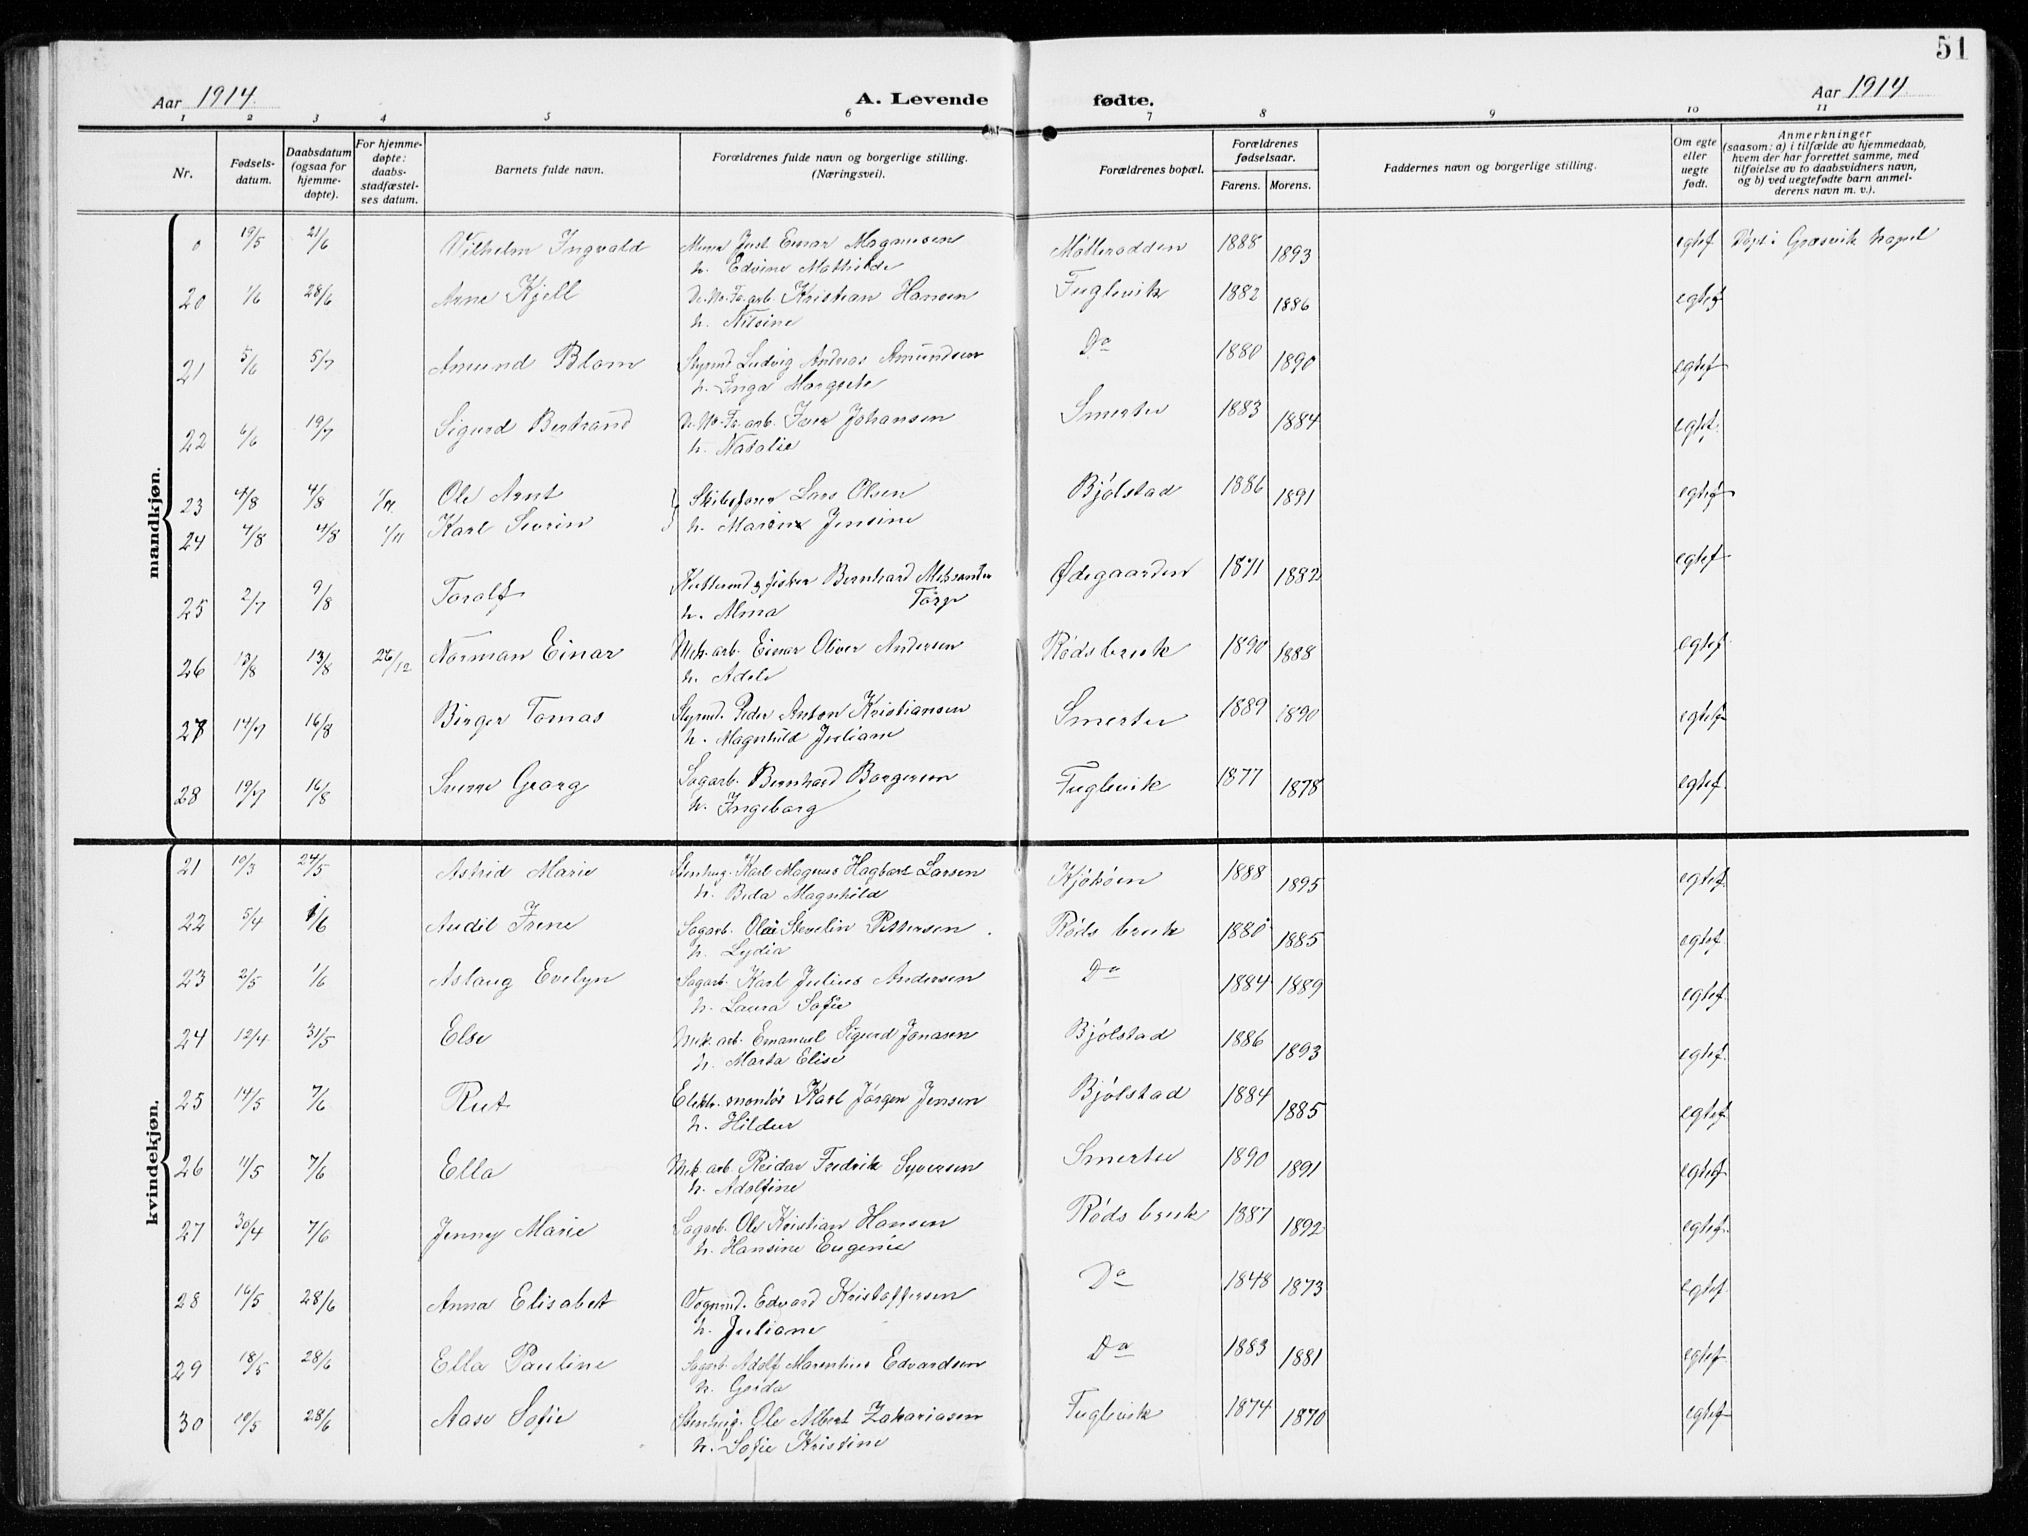 51
Aar 1914. A. Levende fødte. Aar 1914.
1 2 3 4 5 6 7 8 9 10 11
Nr.
Fødsels-
datum.
Daabsdatum
(ogsaa for
hjemme-
døpte).
For hjemme-
døpte:
daabs-
stadfæstel-
ses datum.
Barnets fulde navn.
Forældrenes fulde navn og borgerlige stilling.
(Næringsvei).
Forældrenes bopæl.
Forældrenes
fødselsaar.
Farens. Morens.
Faddernes navn og borgerlige stilling.
Om egte
eller
uegte
født.
Anmerkninger
(saasom: a) i tilfælde av hjemmedaab,
hvem der har forrettet samme, med
tilføielse av to daabsvidners navn,
og b) ved uegtefødte barn anmel-
derens navn m. v.).
mandkjøn.
0 19/5 21/6 Vilhelm Ingvald Murer Just Einar Magnussen Møtterodden 1888 1893 egtef. Døpt i Græsvik kapel
h. Edvine Mathilde
20 1/6 28/6 Arne Kjell Kristian Hansen Fuglevik 1882 1886 egtef
h. Nilsine
21 5/6 5/7 Amund Blom Styrmd Ludvig Andreas Amundsen Do 1880 1890 egtef
h. Inga Margrete
22 6/6 19/7 Sigurd Bertrand Iver Johansen Smertu 1883 1884 egtef.
h. Natalie
23 4/8 4/8 1/11 Ole Arnt Skibsfører Lars Olsen Bjølstad 1886 1891 egtef
24 4/8 4/8 1/11 Karl Severin h. Marie Jensine
25 2/7 9/8 Toralf fisker Bernhard Aleksander Ødegaarden 1871 1882 egtef
h. Alma Torp
26 13/8 13/8 26/12 Norman Einar Mek. arb. Einar Oliver Andersen Røds bruk 1890 1888 egtef
h. Adele
27 14/7 16/8 Birger Tomas Styrmd. Peder Anton Kristiansen Smertu 1889 1890 egtef
h. Magnhild Juliane
28 19/7 16/8 Sverre Georg Sagarb. Bernhard Borgersen Fuglevik 1877 1878 egtef
h. Ingeborg
kvindekjøn.
21 10/3 24/5 Astrid Marie Stenhug. Karl Magnus Hagbart Larsen Kjøkøen 1888 1895 egtef
h. Beda Magnhild
22 5/4 1/6 Audil Irene Sagarb. Olai Stevelin Pettersen Røds bruk 1880 1885 egtef
h. Lydia
23 2/5 1/6 Aslaug Evelyn Sagarb. Karl Julius Andersen Do 1884 1889 egtef
h. Laura Sofie
24 12/4 31/5 Else Mek. arb. Emanuel Sigurd Jonasen Bjølstad 1886 1893 egtef
h. Marta Elise
25 14/5 7/6 Rut Elektr. montør Karl Jørgen Jensen Bjølstad 1884 1885 egtef
h. Hildur
26 11/5 7/6 Ella Mek. arb. Reidar Fredrik Syversen Smertu 1890 1891 egtef
h. Adolfine
27 30/4 7/6 Jenny Marie Sagarb. Ole Kristian Hansen Røds bruk 1887 1892 egtef.
h. Hansine Eugenie
28 16/5 28/6 Anna Elisabet Vognmd. Edvard Kristoffersen Do 1848 1873 egtef
h. Juliane
29 18/5 28/6 Ella Pauline Sagarb. Adolf Marentius Edvardsen Do 1883 1881 egtef
h. Gerda
30 10/5 28/6 Aase Sofie Stenhug. Ole Albert Zakariasen Fuglevik 1874 1870 egtef
h. Sofie Kristine